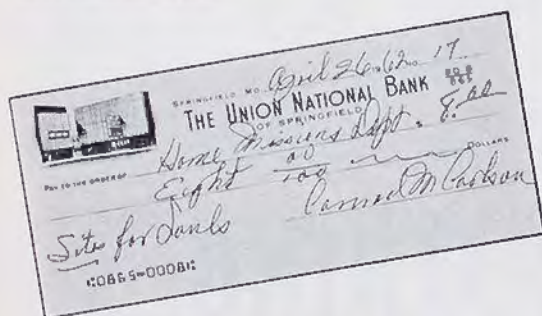 SPRINGFIELD, MO. April 26 1962 No. 17
THE UNION NATIONAL BANK
OF SPRINGFIELD
80-8
865
PAY TO THE ORDER OF Home Missions Dept. $ 8.00
Eight 00/100 DOLLARS
Sites for Souls
Conrad M Carlson
⑆0865⑉0008⑆